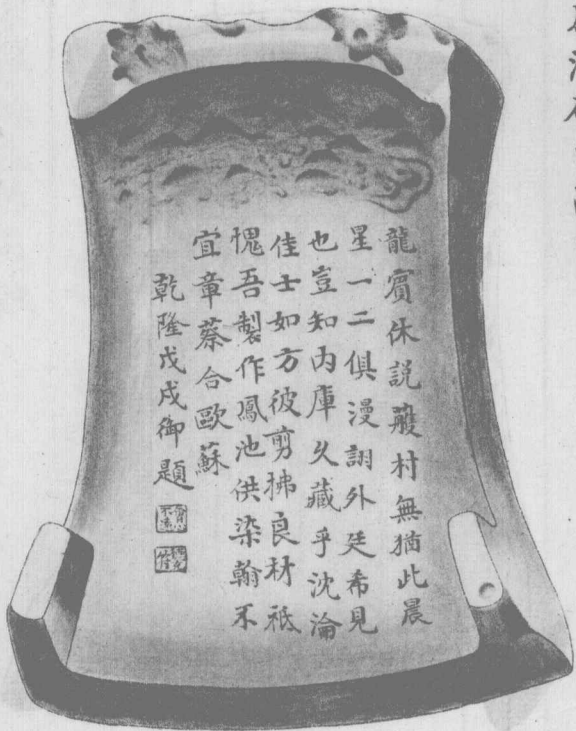 龍賓休説殿村無猶此晨
星一二俱漫詡外廷希見
也豈知內庫久藏乎沈淪
佳士如方彼剪拂良材祗
愧吾製作鳳池供染翰不
宜章蔡合歐蘇
乾隆戊戌御題